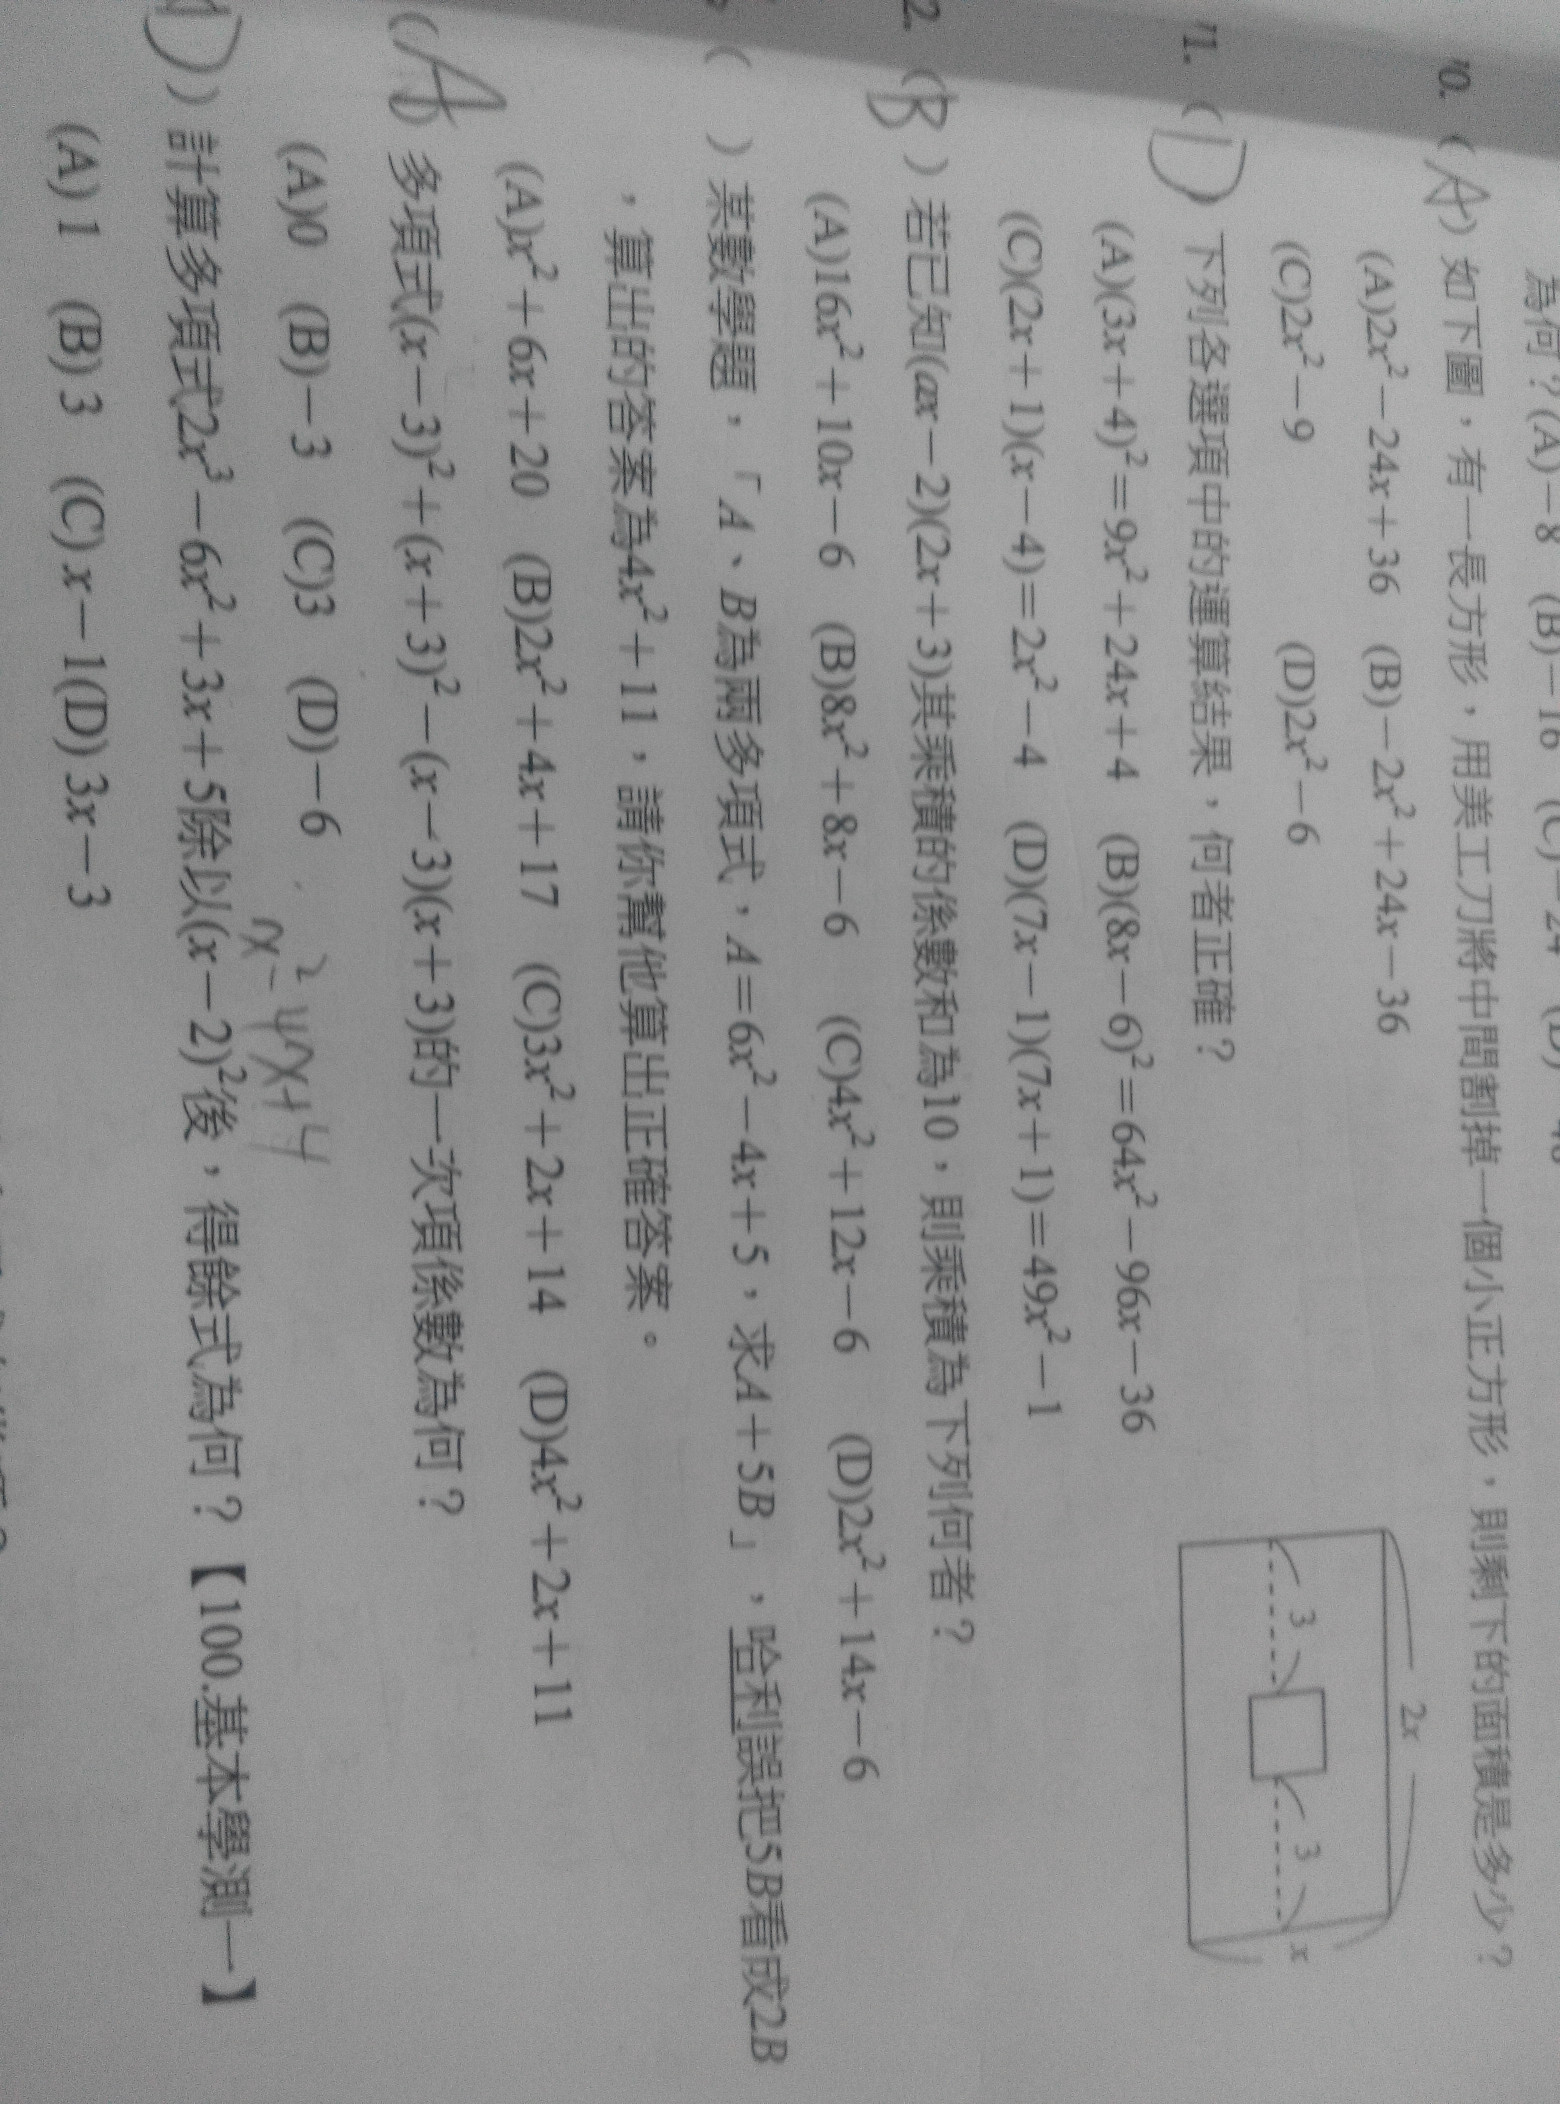 為何？(A)－8 (B)－16 (C)－24 (D)
70. (A) 如下圖，有一長方形，用美工刀將中間割掉一個小正方形，則剩下的面積是多少？
(A)2x²－24x＋36 (B)－2x²＋24x－36
(C)2x²－9 (D)2x²－6
2x
3
3
x
71. (D) 下列各選項中的運算結果，何者正確？
(A)(3x＋4)²＝9x²＋24x＋4 (B)(8x－6)²＝64x²－96x－36
(C)(2x＋1)(x－4)＝2x²－4 (D)(7x－1)(7x＋1)＝49x²－1
2. (B) 若已知(ax－2)(2x＋3)其乘積的係數和為10，則乘積為下列何者？
(A)16x²＋10x－6 (B)8x²＋8x－6 (C)4x²＋12x－6 (D)2x²＋14x－6
( ) 某數學題，「A、B為兩多項式，A＝6x²－4x＋5，求A＋5B」，哈利誤把5B看成2B
，算出的答案為4x²＋11，請你幫他算出正確答案。
(A)x²＋6x＋20 (B)2x²＋4x＋17 (C)3x²＋2x＋14 (D)4x²＋2x＋11
(A) 多項式(x－3)²＋(x＋3)²－(x－3)(x＋3)的一次項係數為何？
(A)0 (B)－3 (C)3 (D)－6
x²－4x＋4
) 計算多項式2x³－6x²＋3x＋5除以(x－2)²後，得餘式為何？【100.基本學測一】
(A) 1 (B) 3 (C) x－1(D) 3x－3